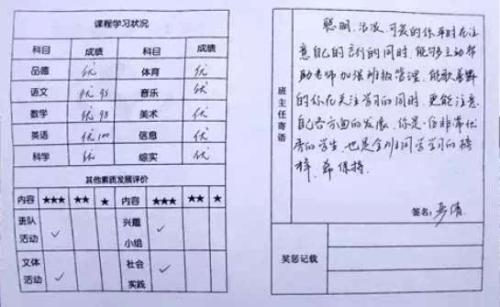 课程学习状况
科目 成绩 科目 成绩
品德 优 体育 优
语文 优 95 音乐 优
数学 优 98 美术 优
英语 优 100 信息 优
科学 优 综实 优
其他素质发展评价
内容 ★★★ ★★ ★ 内容 ★★★ ★★ ★
班队活动 ✓ 兴趣小组 ✓
文体活动 ✓ 社会实践 ✓
班主任寄语
聪明、活泼、可爱的你平时在注
意自己的言行的同时，能够主动帮
助老师加强班级管理，能歌善舞
的你在关注学习的同时，更能注意
自己各方面的发展，你是一位非常优
秀的学生，也是全班同学学习的榜
样，希保持。
签名：
奖惩记载